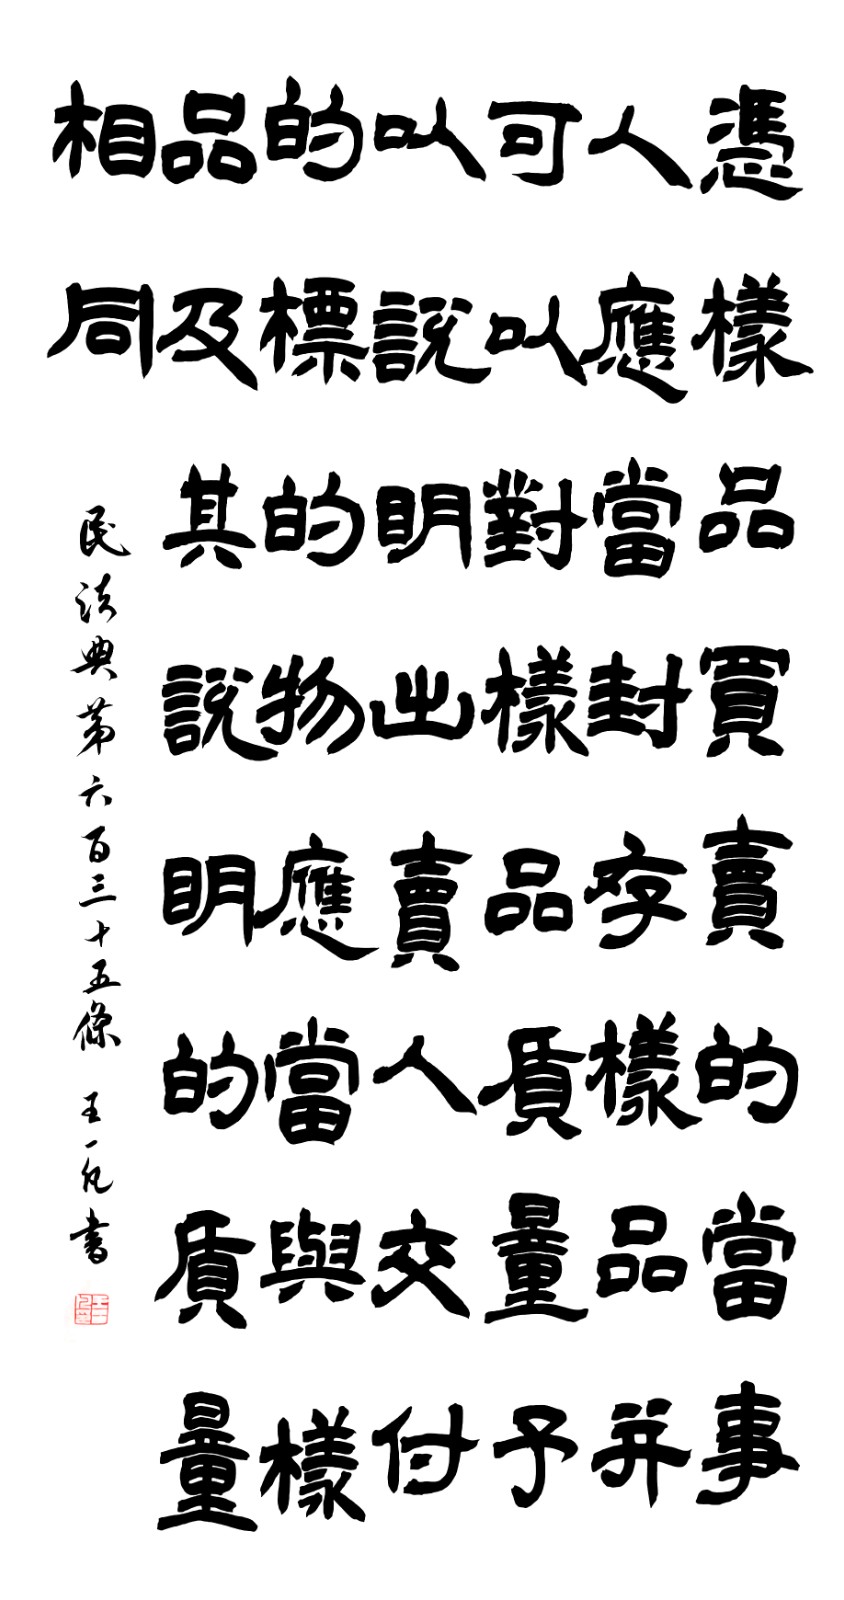 憑樣品買賣的當事
人應當封存樣品并
可以對樣品質量予
以說明出賣人交付
的標的物應當與樣
品及其說明的質量
相同
民法典第六百三十五條 王一凡書